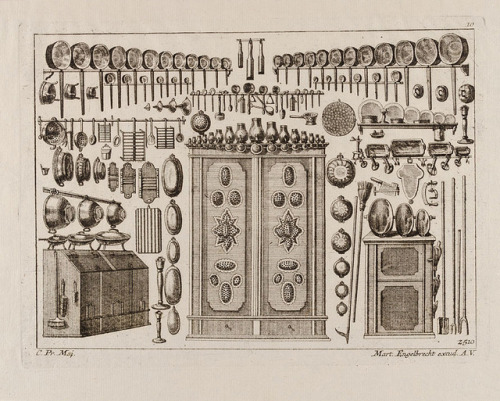 10
2510
C. Pr. Maj. Mart. Engelbrecht excud. A.V.